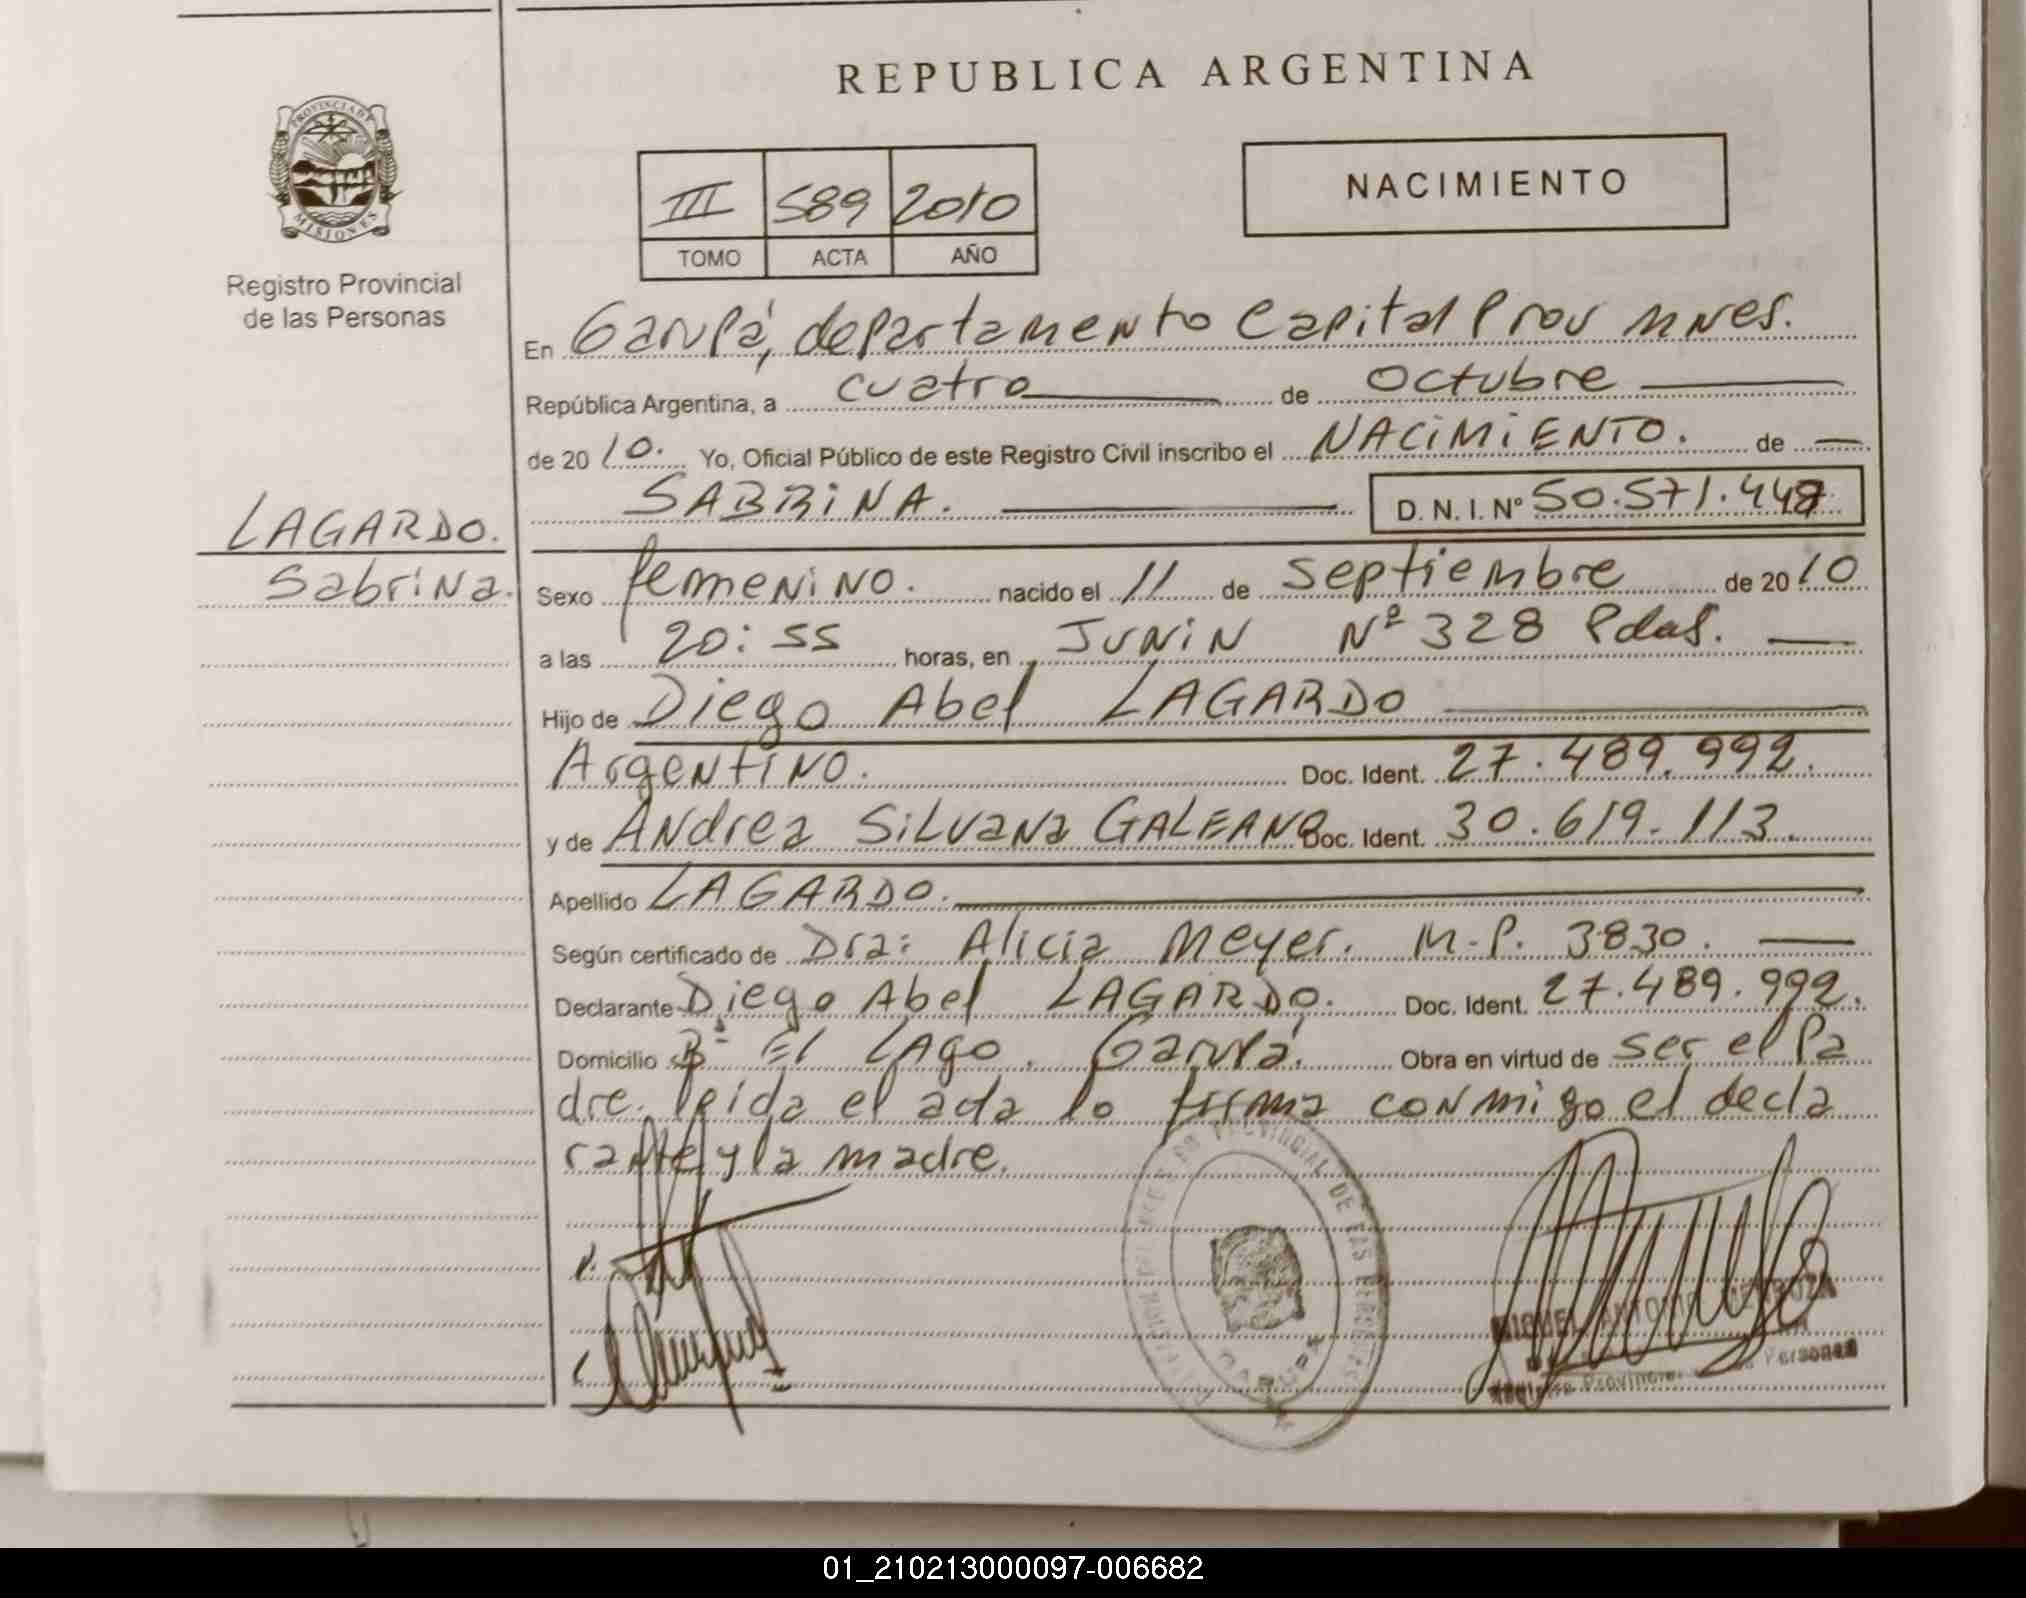 REPUBLICA ARGENTINA
PROVINCIA DE
MISIONES
Registro Provincial
de las Personas
III 589 2010
TOMO ACTA AÑO
NACIMIENTO
En Garupá, departamento Capital Prov Mnes.
República Argentina, a cuatro de octubre
de 2010. Yo, Oficial Público de este Registro Civil inscribo el NACIMIENTO. de
SABRINA. D. N. I. Nº 50.571.447
LAGARDO.
Sabrina.
Sexo femenino. nacido el 11 de septiembre de 2010
a las 20:55 horas, en JUNIN Nº 328 Pdas.
Hijo de Diego Abel LAGARDO
Argentino. Doc. Ident. 27.489.992.
y de Andrea Silvana GALEANO Doc. Ident. 30.619.113.
Apellido LAGARDO.
Según certificado de Dra: Alicia Meyer. M.P. 3830.
Declarante Diego Abel LAGARDO. Doc. Ident. 27.489.992.
Domicilio Bº El Lago. Garupá. Obra en virtud de ser el Pa
dre. leida el acta lo firma conmigo el decla
rante y la madre.
PROVINCIAL DE LAS PERSONAS
GARUPA
MIGUEL ANTONIO MENDOZA
Registro Provincial Personas
01_210213000097-006682